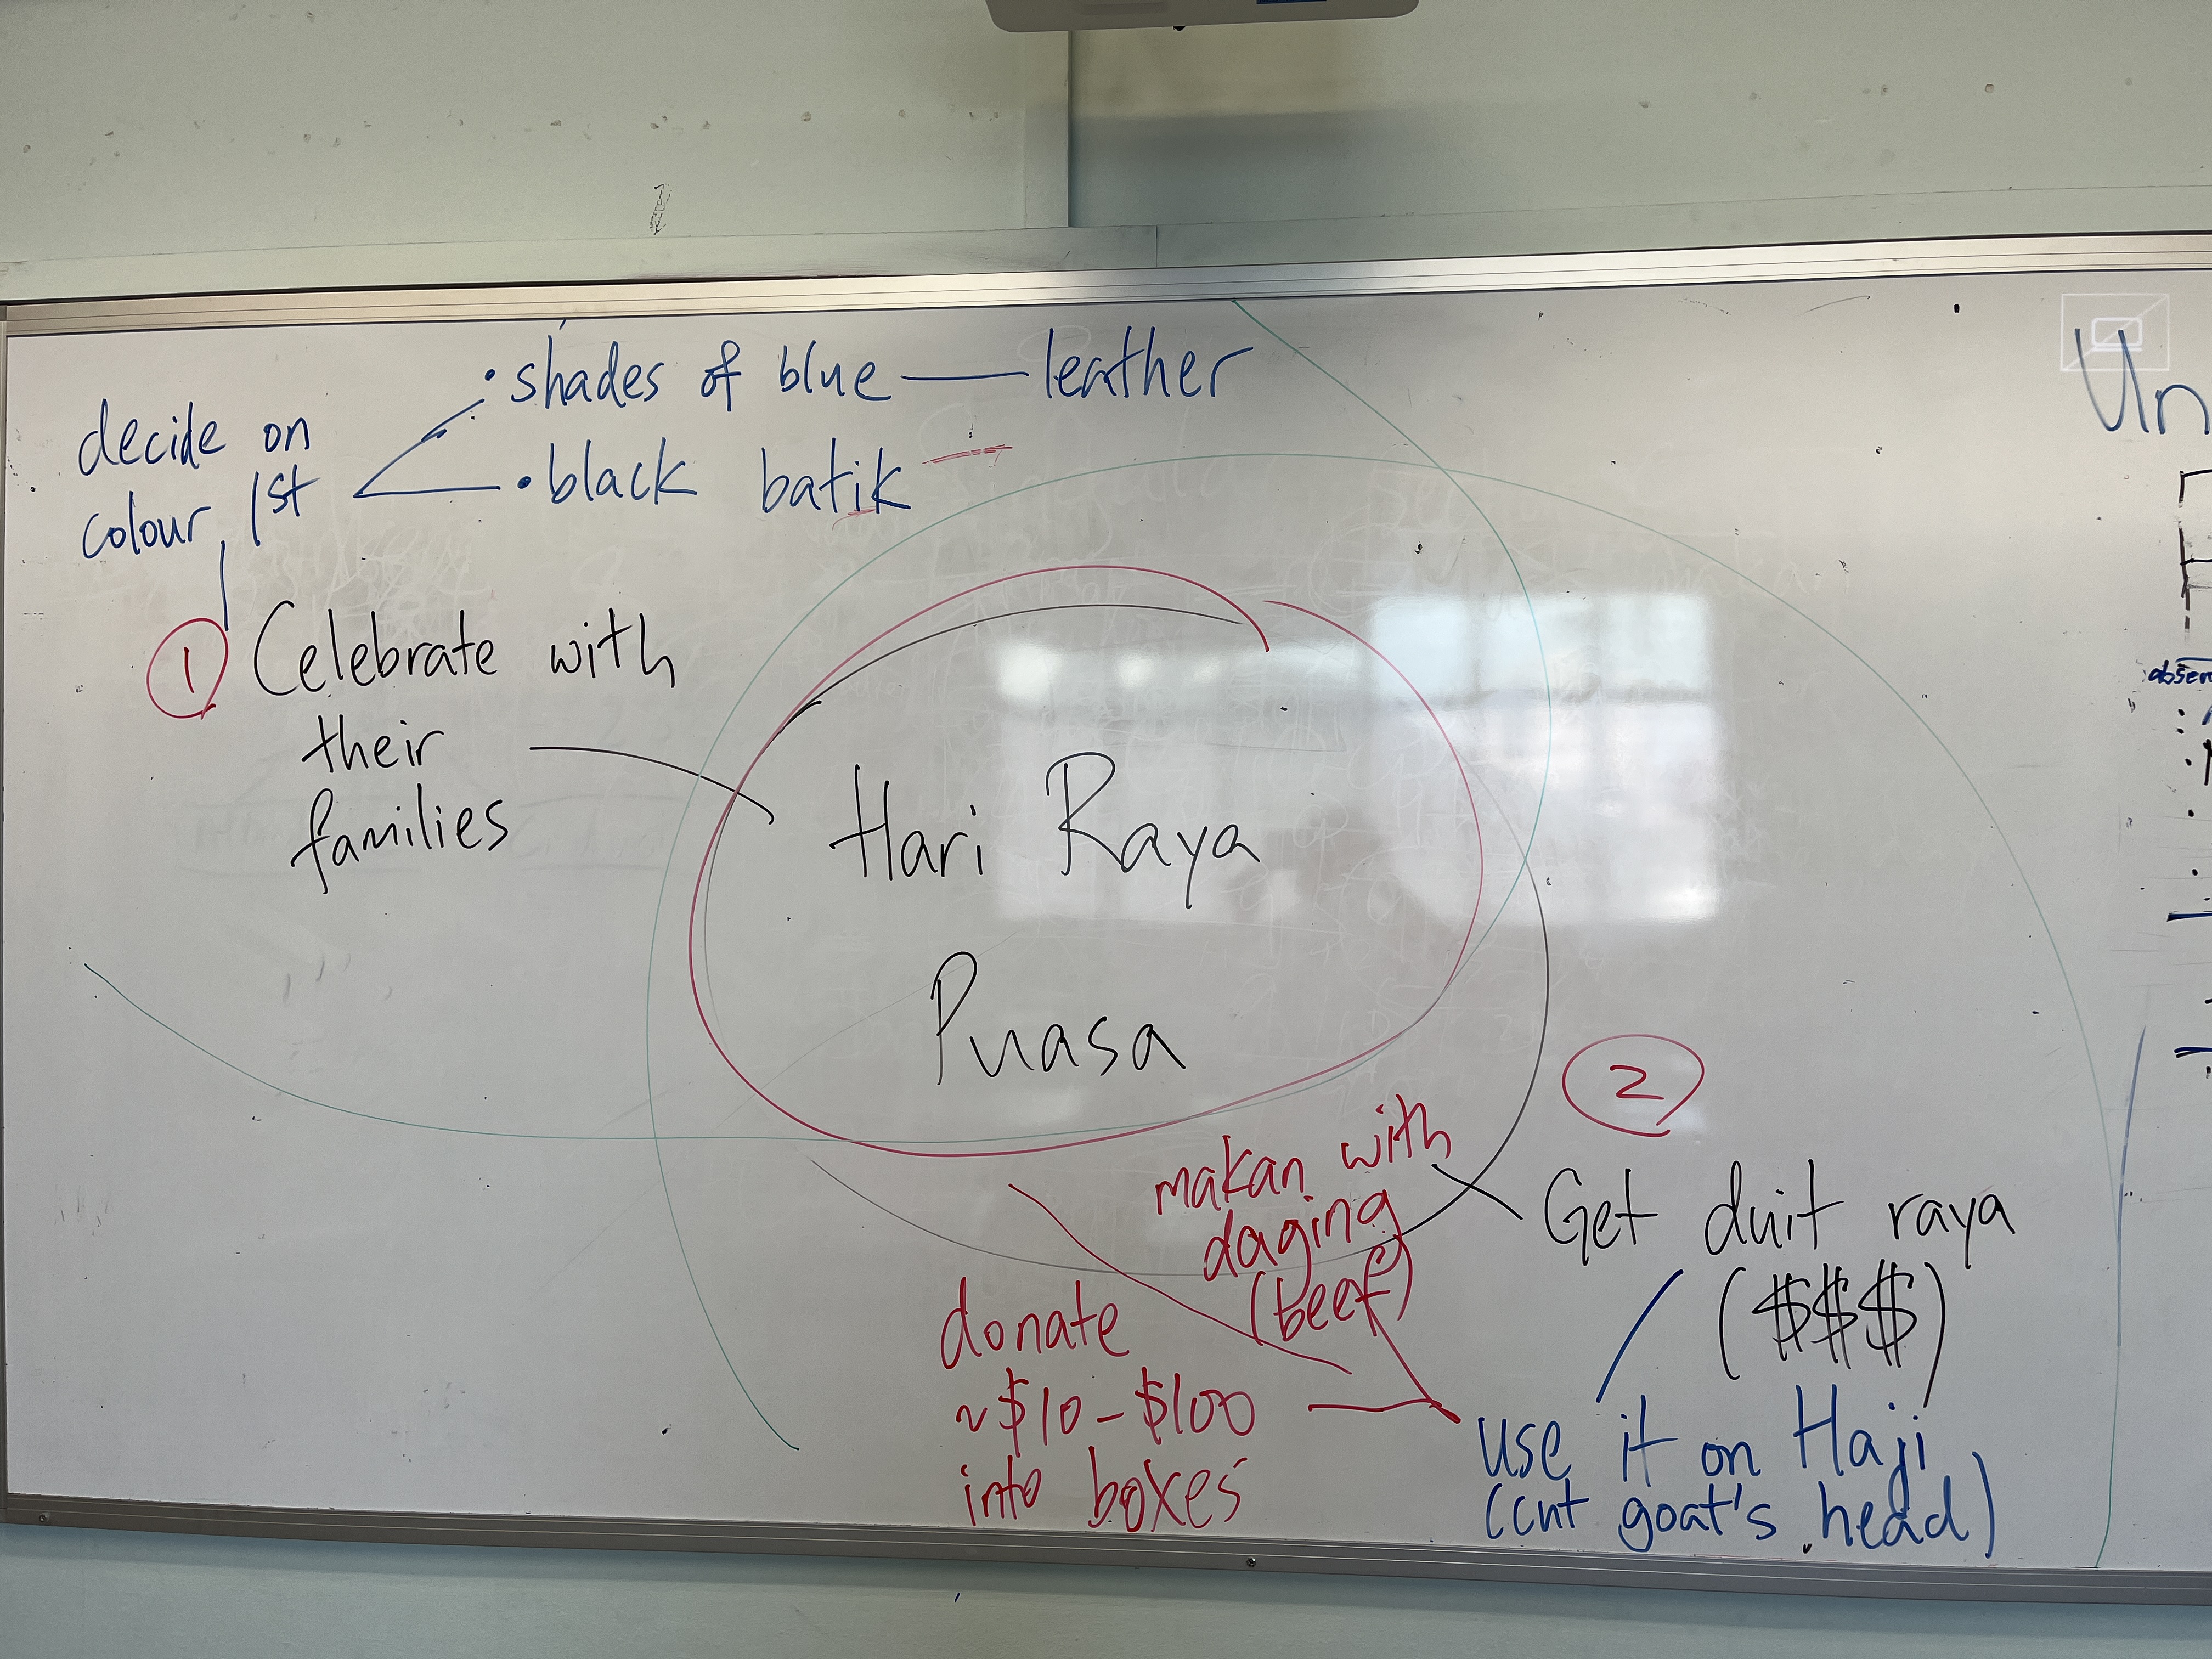 decide on
colour 1st
• shades of blue — leather
• black batik
1 Celebrate with
their
families
Hari Raya
Puasa
2
Get duit raya
($$$)
use it on Haji
(cut goat's head)
makan with
daging
(beef)
donate
~$10-$100
into boxes
Un
obser